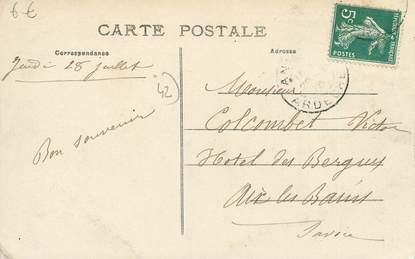 6€
CARTE POSTALE
Correspondance
Adresse
5c
POSTES
ARDECHE
Jeudi 28 Juillet
42
Monsieur
Colcombet Victor
Bon souvenir
Hotel des Bergues
Aix les Bains
Savoie